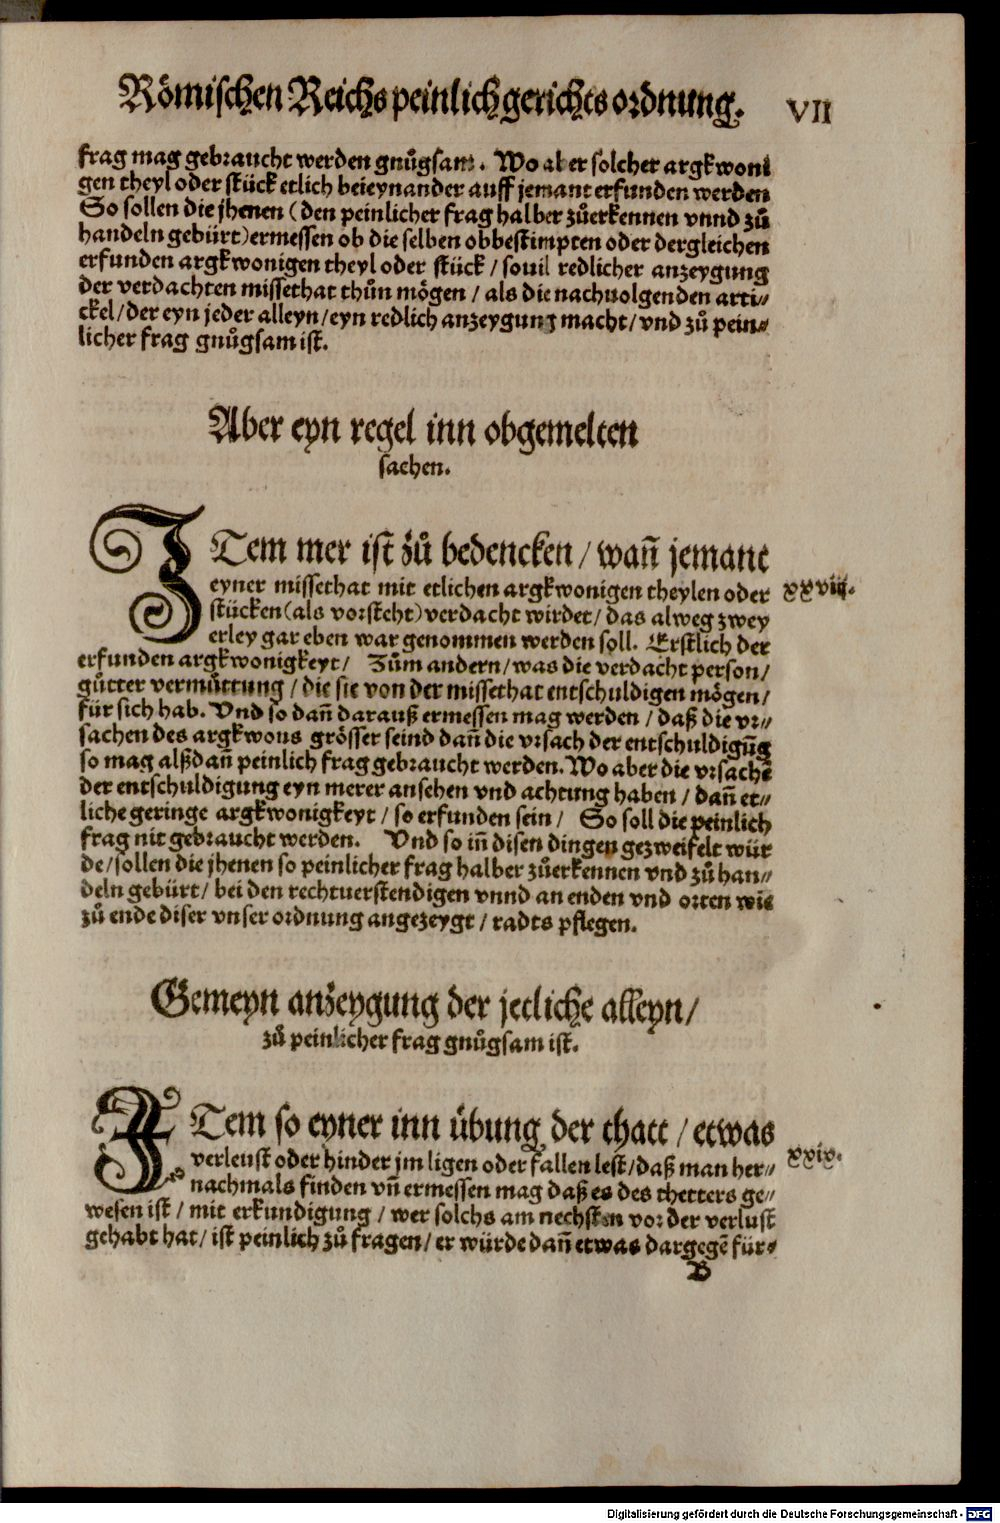 Römischen Reichs peinlich gerichts ordnung. VII
frag mag gebraucht werden gnůgsam. Wo aber solcher argkwoni
gen theyl oder stück etlich beieynander auff jemant erfunden werden
So sollen die jhenen (den peinlicher frag halber zůerkennen vnnd zů
handeln gebürt) ermessen ob die selben obbestimpten oder dergleichen
erfunden argkwonigen theyl oder stück / souil redlicher anzeygung
der verdachten missethat thůn mögen / als die nachuolgenden arti⸗
ckel / der eyn jeder alleyn / eyn redlich anzeygung macht / vnd zů pein⸗
licher frag gnůgsam ist.
Aber eyn regel inn obgemelten
sachen.
ITem mer ist zů bedencken / wañ jemant
eyner missethat mit etlichen argkwonigen theylen oder xxviij.
stücken (als vorsteht) verdacht wirdet / das alweg zwey
erley gar eben war genommen werden soll. Erstlich der
erfunden argkwonigkeyt / Zům andern / was die verdacht person /
gůtter vermůttung / die sie von der missethat entschuldigen mögen /
für sich hab. Vnd so dañ darauß ermessen mag werden / daß die vr⸗
sachen des argkwons grösser seind dañ die vrsach der entschuldigũg
so mag alßdañ peinlich frag gebraucht werden. Wo aber die vrsachẽ
der entschuldigung eyn merer ansehen vnd achtung haben / dañ et⸗
liche geringe argkwonigkeyt / so erfunden sein / So soll die peinlich
frag nit gebraucht werden. Vnd so iñ disen dingen gezweifelt wür
de / sollen die jhenen so peinlicher frag halber zůerkennen vnd zů han⸗
deln gebürt / bei den rechtuerstendigen vnnd an enden vnd orten wie
zů ende diser vnser ordnung angezeygt / radts pflegen.
Gemeyn anzeygung der jetliche alleyn /
zů peinlicher frag gnůgsam ist.
ITem so eyner inn übung der thatt / etwas
verleust oder hinder jm ligen oder fallen lest / daß man her⸗ xxix.
nachmals finden vñ ermessen mag daß es des thetters ge⸗
wesen ist / mit erkundigung / wer solchs am nechsten vor der verlust
gehabt hat / ist peinlich zů fragen / er würde dañ etwas dargegẽ für⸗
B
Digitalisierung gefördert durch die Deutsche Forschungsgemeinschaft - DFG